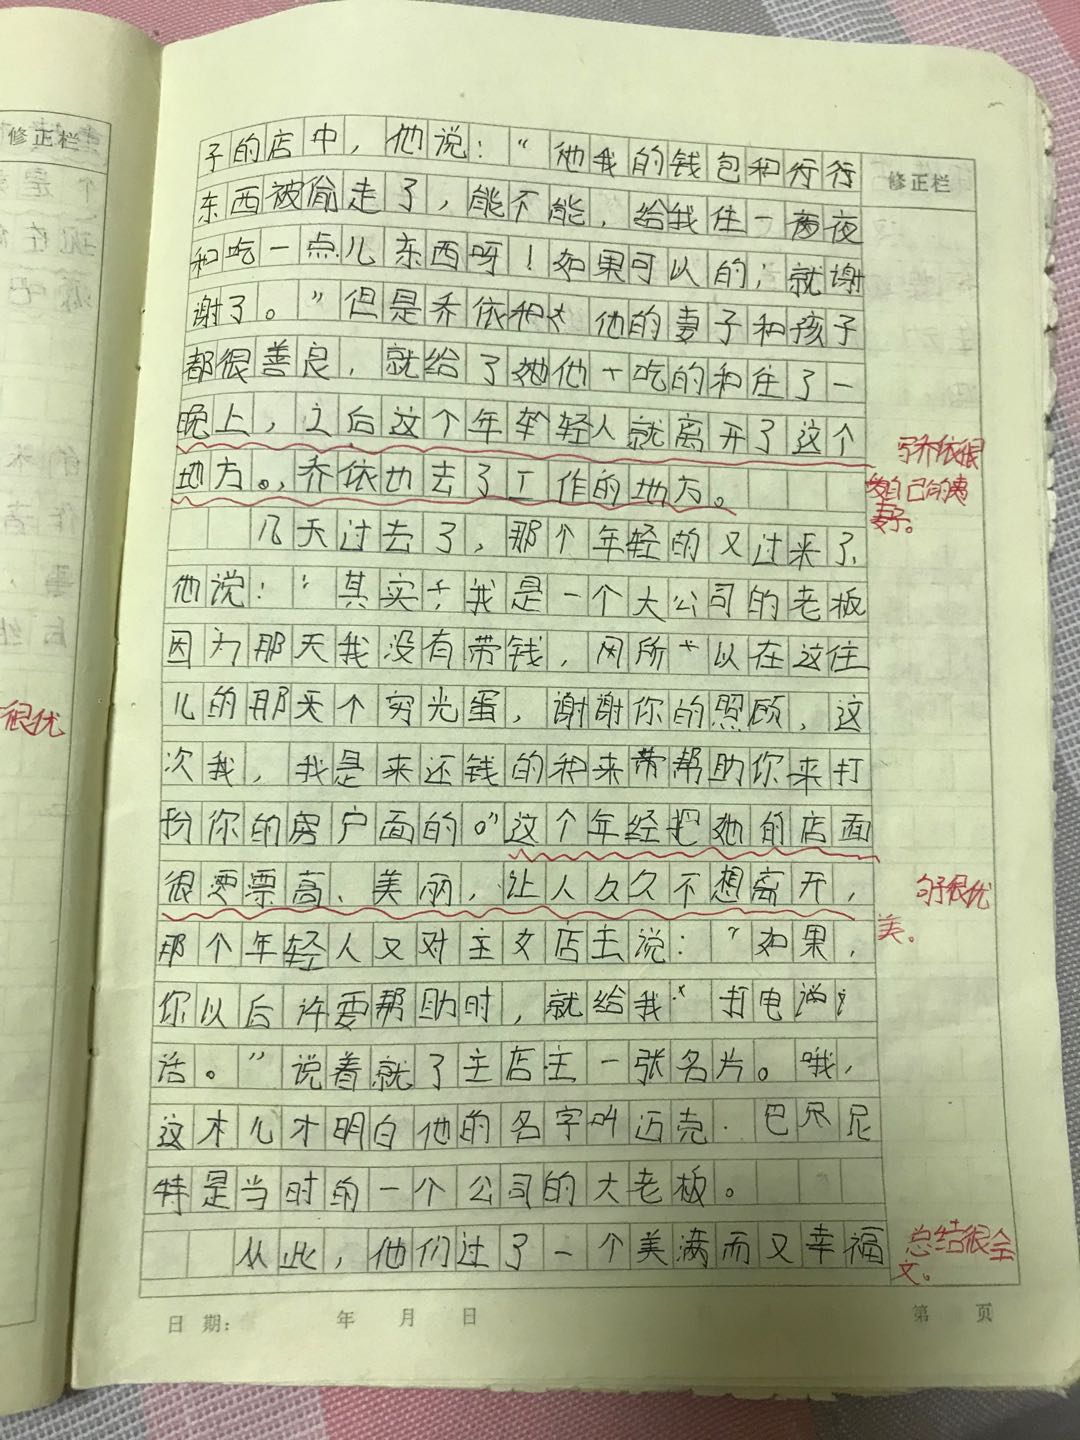 修正栏
很优
修正栏
子的店中，他说：“他我的钱包和行行
东西被偷走了，能不能，给我住一夜夜
和吃一点儿东西呀！如果可以的；就谢
谢了。”但是乔依和他的妻子和孩子
都很善良，就给了她他吃的和住了一
晚上，之后这个年轻人就离开了这个
地方。，乔依也去了工作的地方。
写乔依很
爱自己的妻
妻子。
几天过去了，那个年轻的又过来了，
他说：“其实我是一个大公司的老板
因为那天我没有带钱，网所以在这住
儿的那天个穷光蛋，谢谢你的照顾，这
次我，我是来还钱的和来带帮助你来打
扮你的房户面的。”这个年经把她的店面
很要票高、美丽，让人久久不想离开，
句子很优
美。
那个年轻人又对主文店主说：“如果，
你以后许要帮助时，就给我打电
话。”说着就了主店主一张名片。哦，
这才儿才明白他的名字叫迈克·巴尔尼
特是当时的一个公司的大老板。
从此，他们过了一个美满而又幸福
总结很全
文。
日期： 年 月 日
第 页